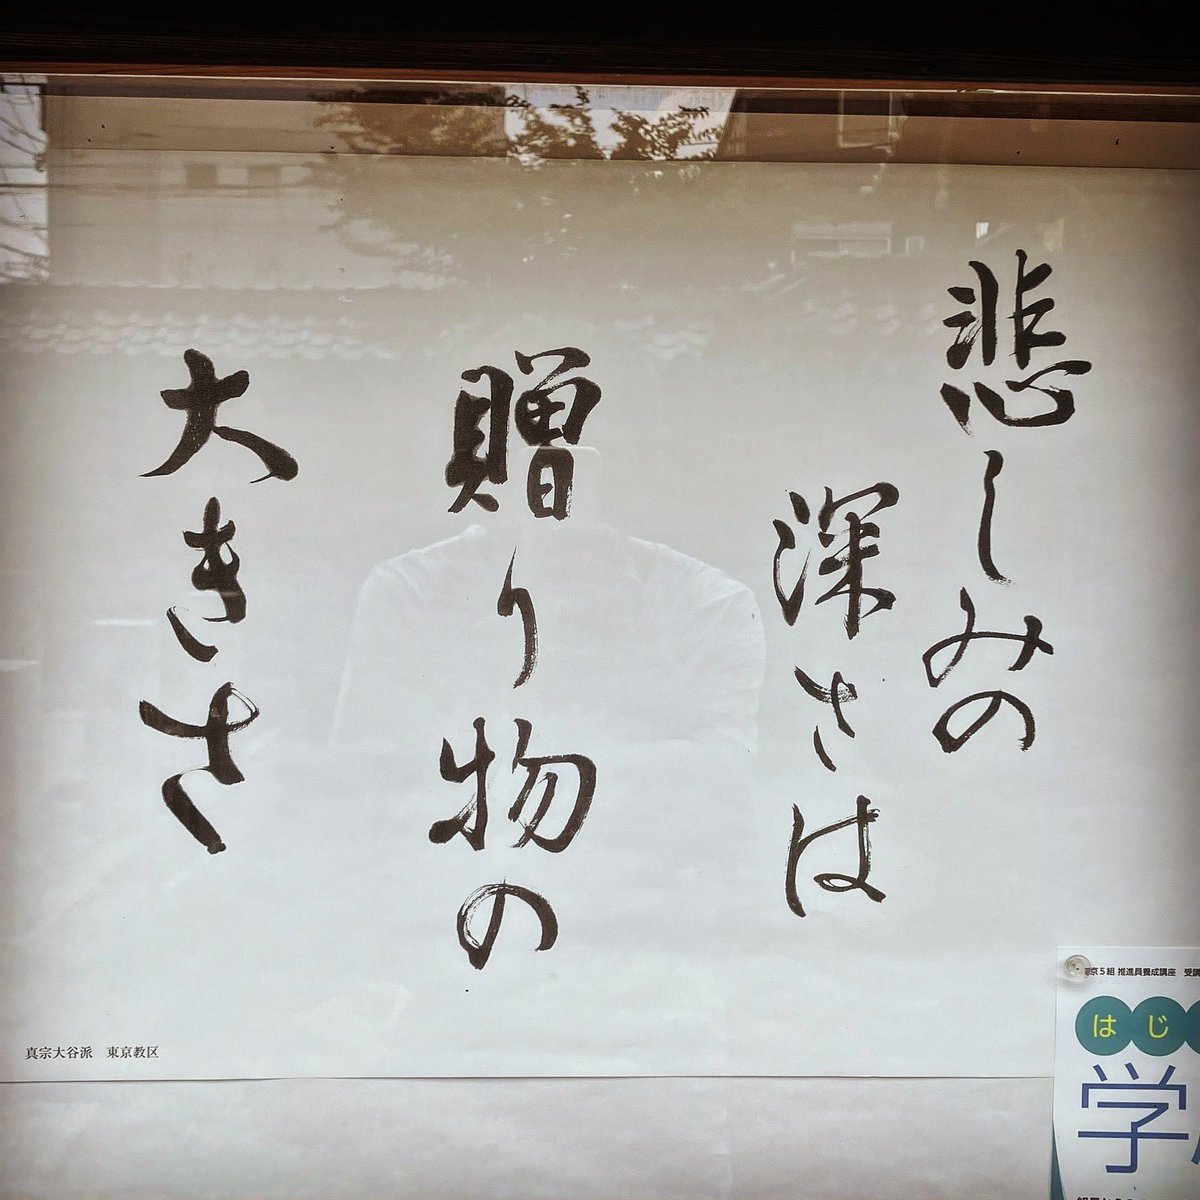 悲しみの
深さは
贈り物の
大きさ
真宗大谷派　東京教区
京５組 推進員養成講座　受講
はじ
学